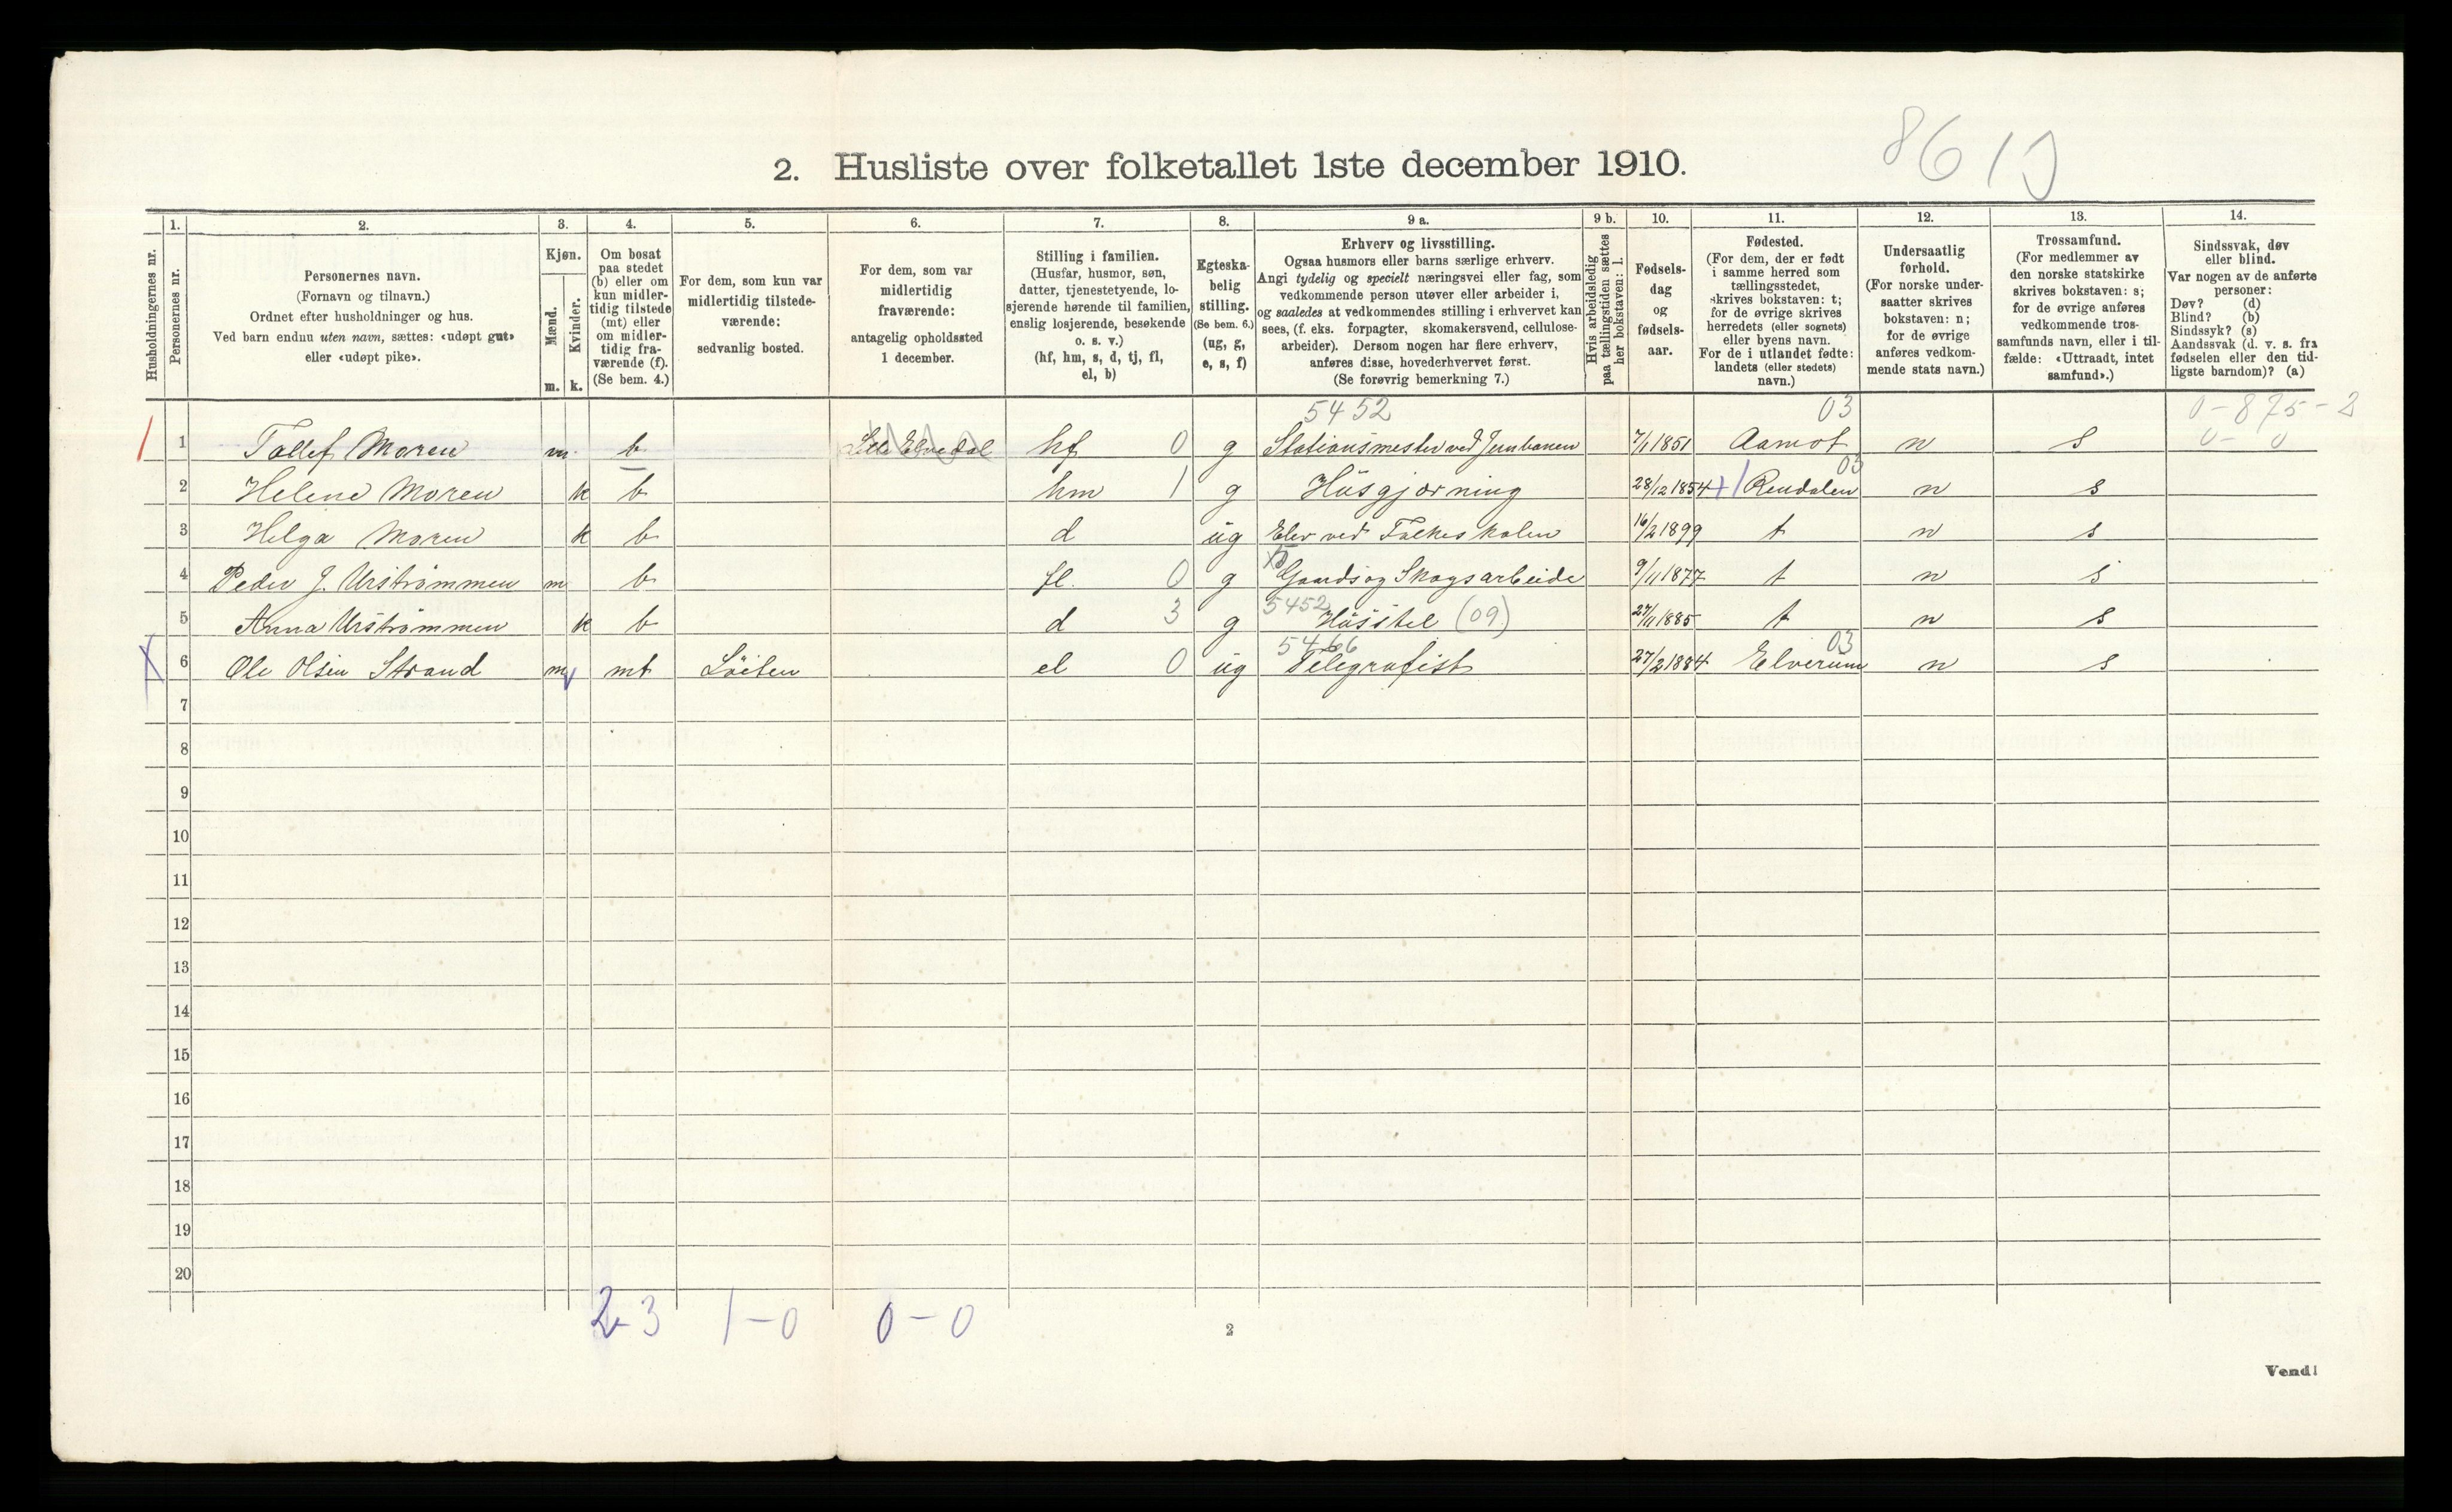 8619
2. Husliste over folketallet 1ste december 1910.
1. 2. 3. 4. 5. 6. 7. 8. 9 a. 9 b. 10. 11. 12. 13. 14.
Husholdningernes nr.
Personernes nr.
Personernes navn.
(Fornavn og tilnavn.)
Ordnet efter husholdninger og hus.
Ved barn endnu uten navn, sættes: «udøpt gut»
eller «udøpt pike».
Kjøn.
Mænd.
Kvinder.
m. k.
Om bosat
paa stedet
(b) eller om
kun midler-
tidig tilstede
(mt) eller
om midler-
tidig fra-
værende (f).
(Se bem. 4.)
For dem, som kun var
midlertidig tilstede-
værende:
sedvanlig bosted.
For dem, som var
midlertidig
fraværende:
antagelig opholdssted
1 december.
Stilling i familien.
(Husfar, husmor, søn,
datter, tjenestetyende, lo-
sjerende hørende til familien,
enslig losjerende, besøkende
o. s. v.)
(hf, hm, s, d, tj, fl,
el, b)
Egteska-
belig
stilling.
(Se bem. 6.)
(ug, g,
e, s, f)
Erhverv og livsstilling.
Ogsaa husmors eller barns særlige erhverv.
Angi tydelig og specielt næringsvei eller fag, som
vedkommende person utøver eller arbeider i,
og saaledes at vedkommendes stilling i erhvervet kan
sees, (f. eks. forpagter, skomakersvend, cellulose-
arbeider). Dersom nogen har flere erhverv,
anføres disse, hovederhvervet først.
(Se forøvrig bemerkning 7.)
Hvis arbeidsledig
paa tællingstiden sættes
her bokstaven: l.
Fødsels-
dag
og
fødsels-
aar.
Fødested.
(For dem, der er født
i samme herred som
tællingsstedet,
skrives bokstaven: t;
for de øvrige skrives
herredets (eller sognets)
eller byens navn.
For de i utlandet fødte:
landets (eller stedets)
navn.)
Undersaatlig
forhold.
(For norske under-
saatter skrives
bokstaven: n;
for de øvrige
anføres vedkom-
mende stats navn.)
Trossamfund.
(For medlemmer av
den norske statskirke
skrives bokstaven: s;
for de øvrige anføres
vedkommende tros-
samfunds navn, eller i til-
fælde: «Uttraadt, intet
samfund».)
Sindssvak, døv
eller blind.
Var nogen av de anførte
personer:
Døv? (d)
Blind? (b)
Sindssyk? (s)
Aandssvak (d. v. s. fra
fødselen eller den tid-
ligste barndom)? (a)
5452 03 0-875-2
1 Tollef Moren m. b Lille Elvedal hf 0 g Stationsmester ved Jernbanen 7/1 1851 Aamot n s 0-0
03
2 Helene Moren k b hm 1 g Husgjørning 28/12 1854 Rendalen n s
3 Helga Moren k b d ug Elev ved Folkeskolen 16/2 1899 t n s
4 Peder J. Urstrømmen m b fl. 0 g Gaards og Skogsarbeide 9/11 1877 t n s
5 Anna Urstrømmen k b d 3 g 5452 Husstel (09) 27/11 1885 t n s
5466 03
6 Ole Olsen Strand m mt Löiten el 0 ug Telegrafist 27/2 1884 Elverum n s
7
8
9
10
11
12
13
14
15
16
17
18
19
20
2-3 1-0 0-0
2
Vend!